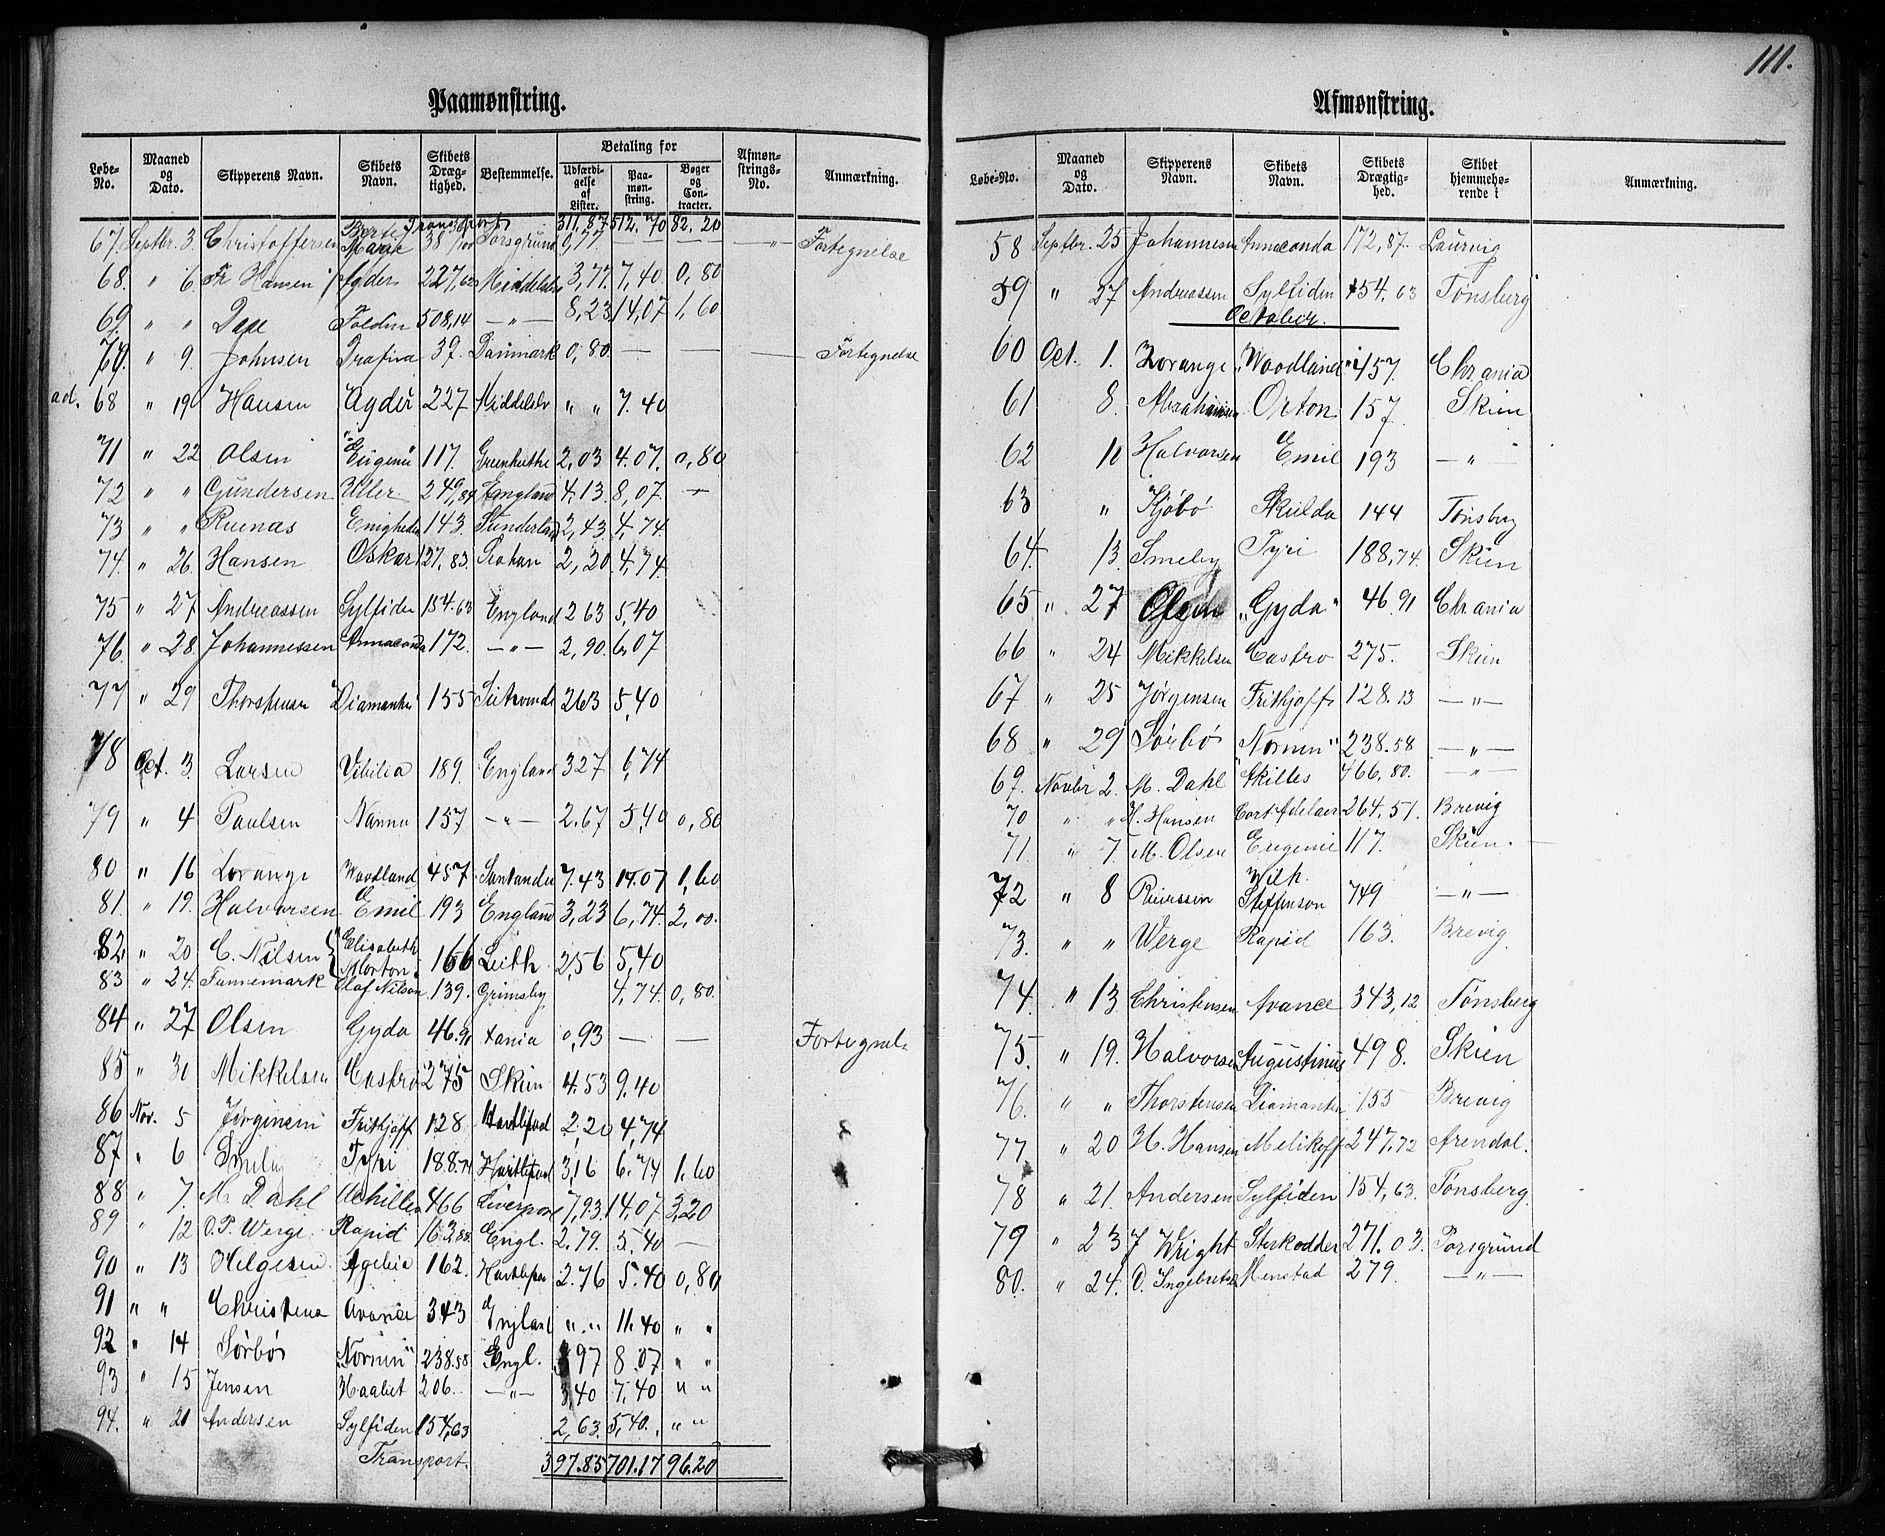 111.
Paamønstring.
Løbe-No. Maaned og Dato. Skipperens Navn. Skibets Navn. Skibets Drægtighed. Bestemmelse. Betaling for Udfærdigelse af Lister. Paamønstring. Bøger og Contracter. Afmønstrings-No. Anmærkning.
Transport 311.87 512.70 82.20
67. Septbr. 3. Christoffersen Marie 38 Porsgrund 0,77 — — — " — Fortegnelse
68. " 6. Fr Hansen Agder 227,62 Middelsbr 3,77. 7,40. 0,80
69. " " Dae Folden 508,14 — " — 8,23 14,07 1,60
70. " 9. Johnsen 39. Danmark 0,80. — — — Fortegnelse
ad. 68 " 19 Hansen Agder 227 Middelsbr " " 7.40
71 " 22 Olsen "Eugenie 117. 2,03 4.07. 0,80
72 " " Gundersen Uller 249,84 England 4,13 8,07. —
73 " " Ruenas Enigheden 143. Sunderland 2,43. 4,74.
74. " 26. Hansen Oskar 127.83. Seaham 2,20. 4,74.
75 " 27 Andreassen Sylfiden 154.63 England 2 63 5,40
76. " 28. Johannessen Annaconda 172. — " — 2,90. 6,07
77 " 29 Thorstensen Diamanten 155 2,63 5,40
78 Oct. 3. Larsen Vibilia 189. England 3 27 6,74
79 " 4 Paulsen Nanna 157 — " — 2.67 5,40 0,80
80 " 16 Lorange Woodland 457 Santander 7.43 14.07 1,60
81. " 19. Halvorsen Emil 193 England 3,23 6,74. 2,00.
82. " 20 C. Nilsen Elisabeth Morton 166 Leith 2,56 5,40
83 " 24. Tannemark Olaf Nilsen 139. Grimsby 4,74. 0,80.
84 " 27 Olsen Gyda 46.91 xania 0,93 — — Fortegnel.
85 " 31 Mikkelsen Castro 275 Skien 4.53 9.40
86 Nov. 5 Jørginsen Frithjoff 128 Hartlepool 2,20 4,74
87 " 6 Smeby Tyri 188.74 Hartlepool 3,16 6.74 1.60
88 " 7. M. Dahl Achilles 466 Liverpool 7,93. 14,07 3,20
89 " 12 O. P. Werge Rapid 163,88 Engl. 2.79. 5.40 —
90 " 13 Helgesen 162. Hartlepool 2.76 5.40 0,80
91 " " Christensen Avance 343 England " " 11.40 " "
92 " 14 Sørbø "Nornen" 238.58 Engl. 3 97 8.07 " "
93 " 15 Jensen Haabet 206. — " — 3,40 7,40 " "
94. " 21 Andersen Sylfiden 154,63 2,63. 5,40. " "
Transport. 397.85 701.17 96.20
Afmønstring.
Løbe-No. Maaned og Dato. Skipperens Navn. Skibets Navn. Skibets Drægtighed. Skibet hjemmehørende i Anmærkning.
58 Septbr. 25 Johannesen Annaconda 172,87. Laurvig
59 " 27 Andreassen Sylfiden 154.63 Tønsberg
October.
60 Oct. 1. Lorange "Woodland" 457. Chrania
61 8. Abrahamsen Orton 157. Skien
62 10 Halvorsen Emil 193 — " —
63 " Kjøbø Skulda 144 Tønsberg
64. 13. Smeby Tyri 188,74. Skien
65 " 27 Olsen "Gyda" 46.91 Chrania
66 " 24 Mikkelsen Castro 275. Skien
67 " 25 Jørgensen Frithjoff 128.13 — " —
68 " 29 Sørbø "Nornen" 238.58 — " —
69. Novbr 2. M. Dahl Akilles 466,80. — " —
70 " " H. Hansen Cort Adelaer 264,51. Brevig
71. " 7. M. Olsen Eugenie 117. Skien.
72 " 8 Reierssen Wilh. Steffenson 749 — " —
73. " " Werge Rapid 163. Brevig
74. " 13 Christensen Avance 343,12 Tønsberg
75. " 19. Halvorsen Augustinus 498. Skien
76. " " Thorstensen Diamanten 155 Brevig
77. " 20 H. Hansen Melikoff 247,72 Arendal.
78 " 21. Andersen Sylfiden 154,63. Tønsberg
79 " 23 J Wright Sterkodder 271.03. Porsgrund
80. " 24. O. Ingebretsen Menstad 279. — " —